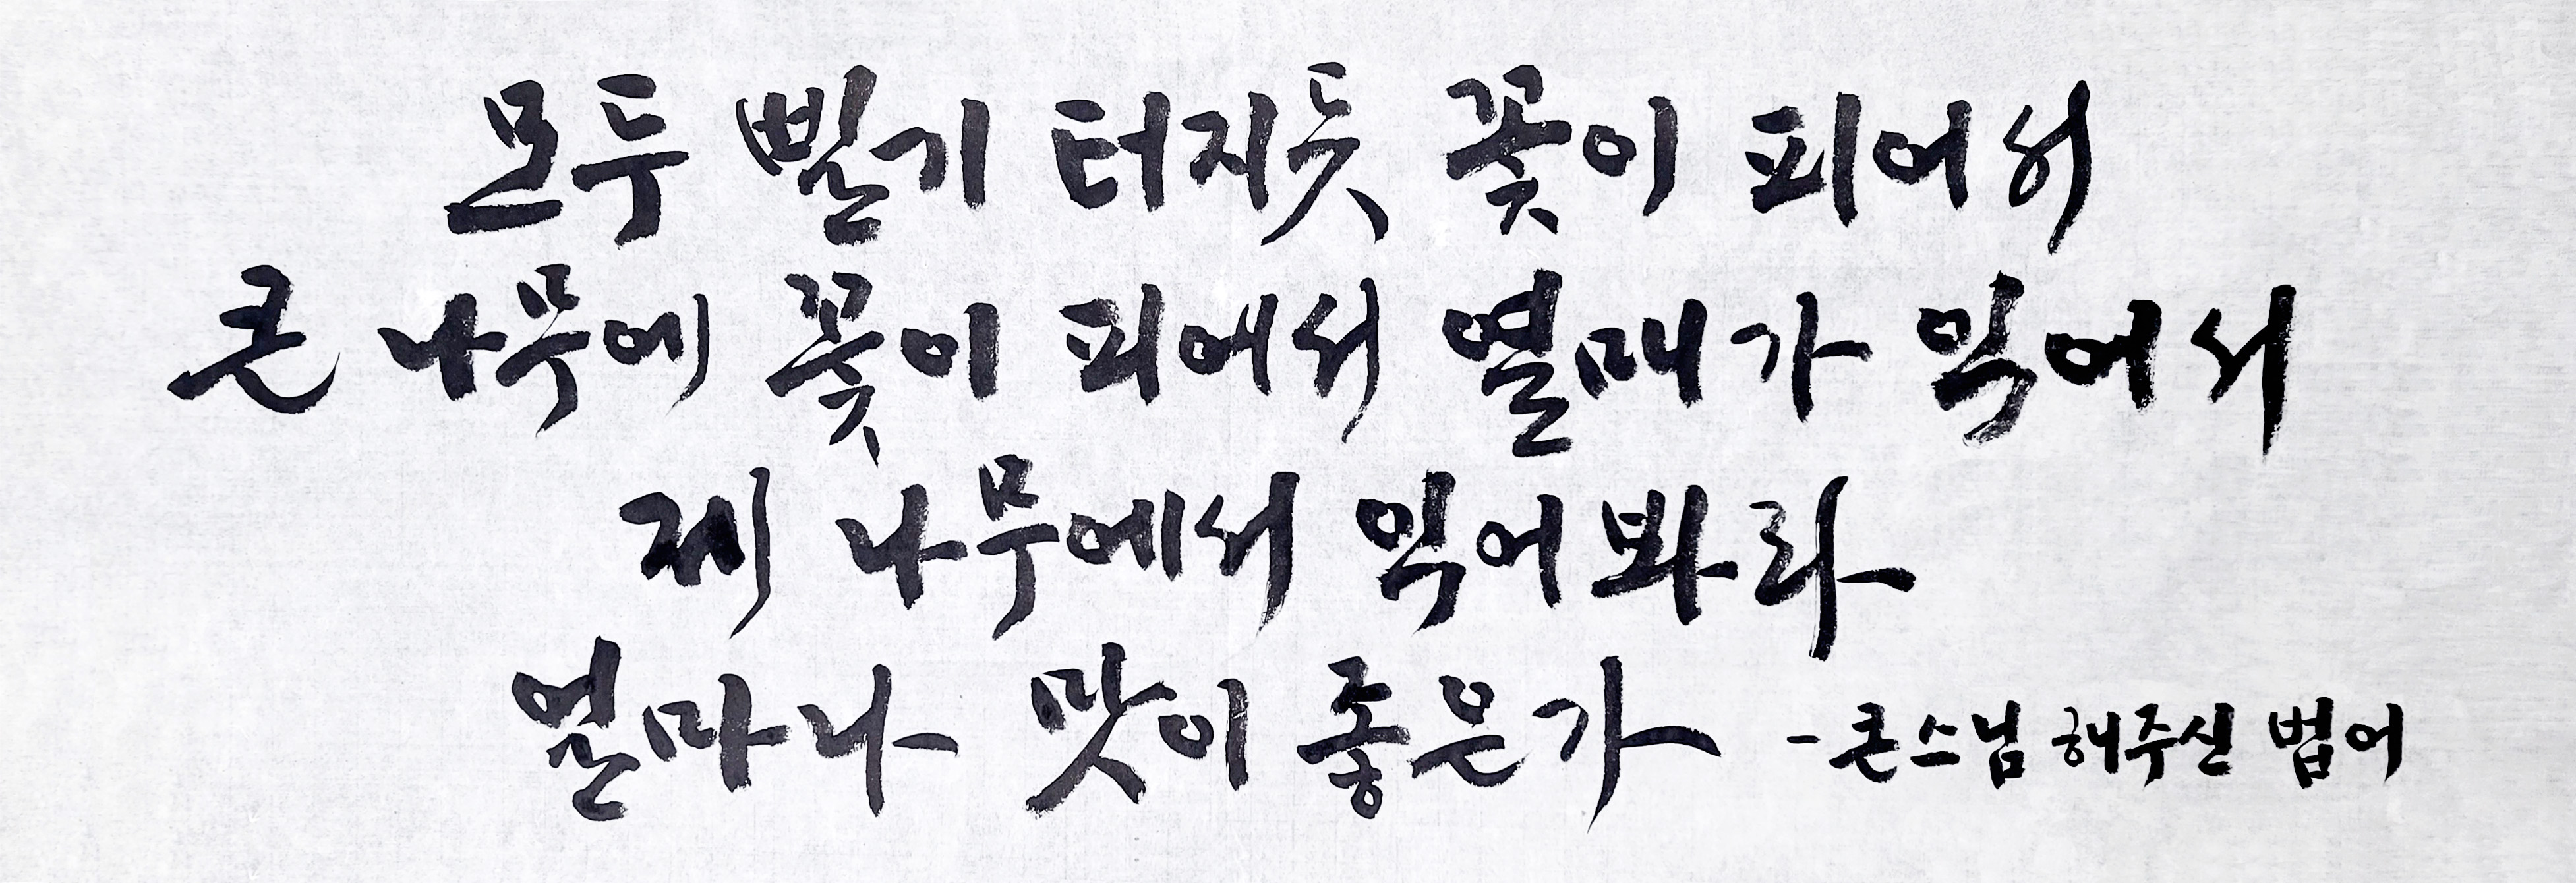 모두 삘기 터지듯 꽃이 피어서
큰 나무에 꽃이 피어서 열매가 익어서
제 나무에서 익어봐라
얼마나 맛이 좋은가 -큰스님 해주신 법어